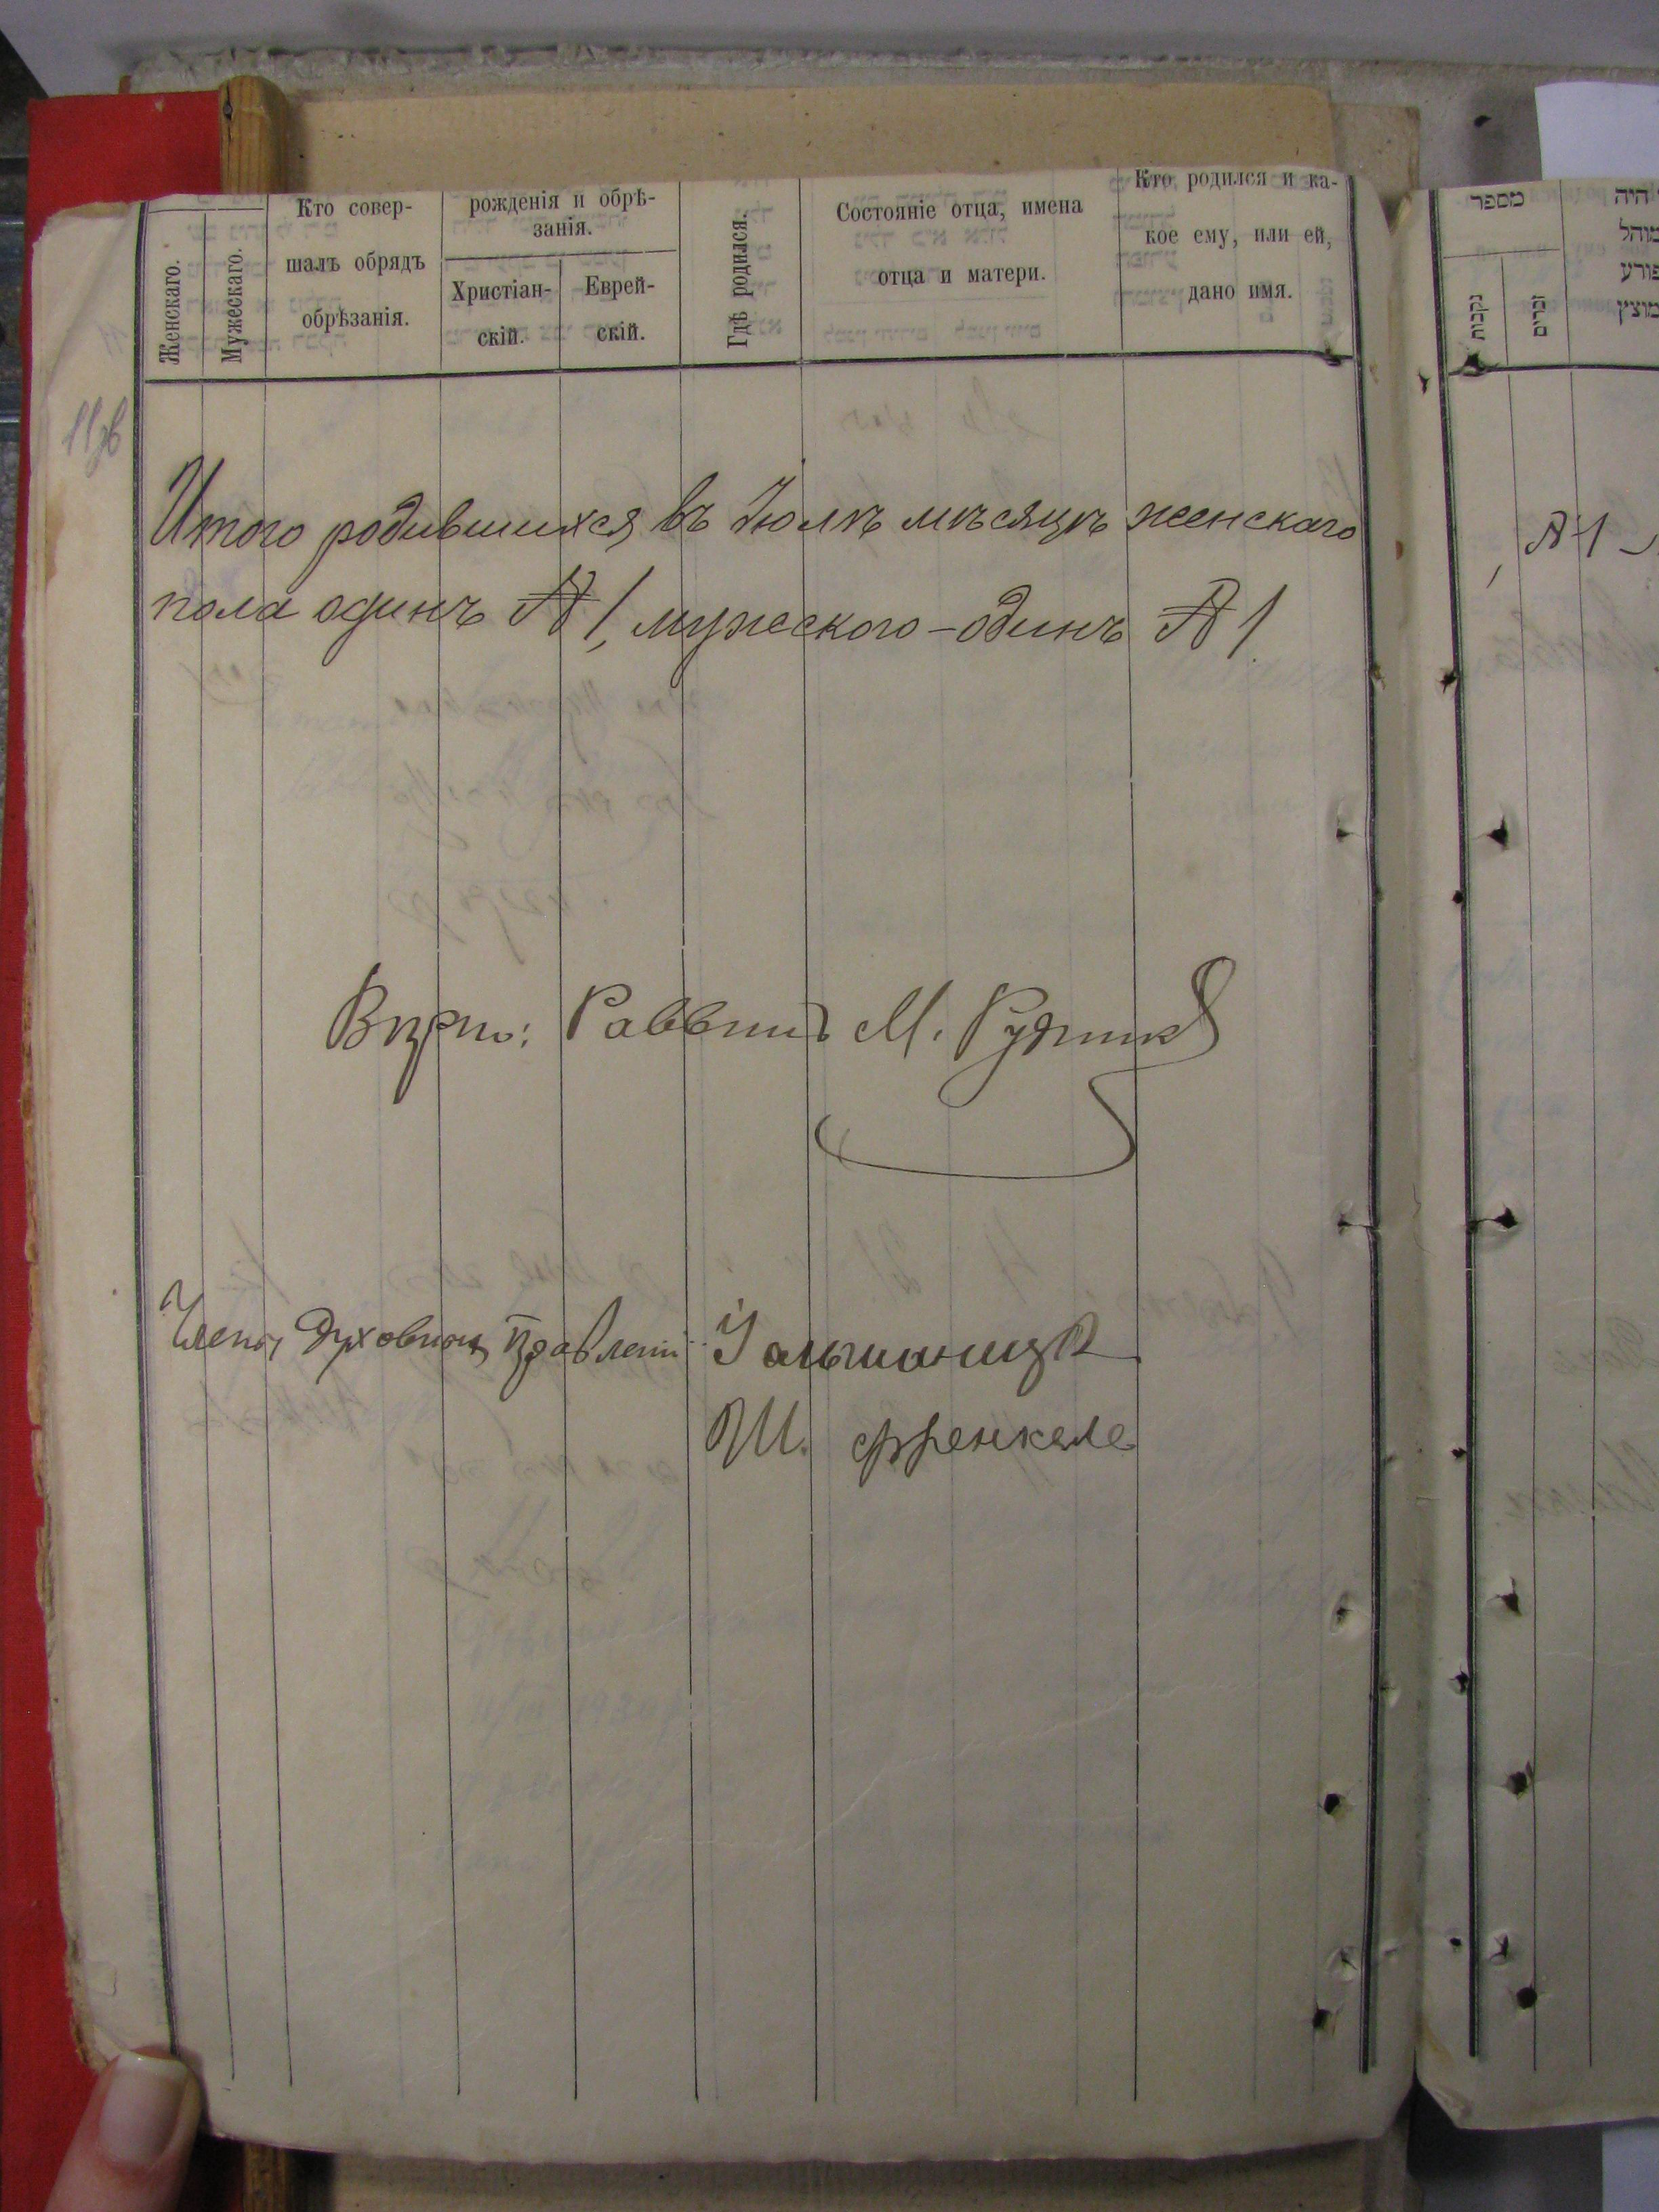 Женскаго.
Мужескаго.
Кто совер-
шалъ обрядъ
обрѣзанія.
рожденія и обрѣ-
занія.
Христіан-
скій.
Еврей-
скій.
Гдѣ родился.
Состояніе отца, имена
отца и матери.
Кто родился и ка-
кое ему, или ей,
дано имя.
Итого родившихся въ Іюлѣ мѣсяцѣ женскаго
пола одинъ № 1, мужеского - одинъ № 1
Вѣрно: Раввинъ М. Рудник
Члены Духовнаго Правленія:
Ш. Френкель
מספר
נקבות
זכרים
היה
מוהל
פורע
מוצץ
№ 1